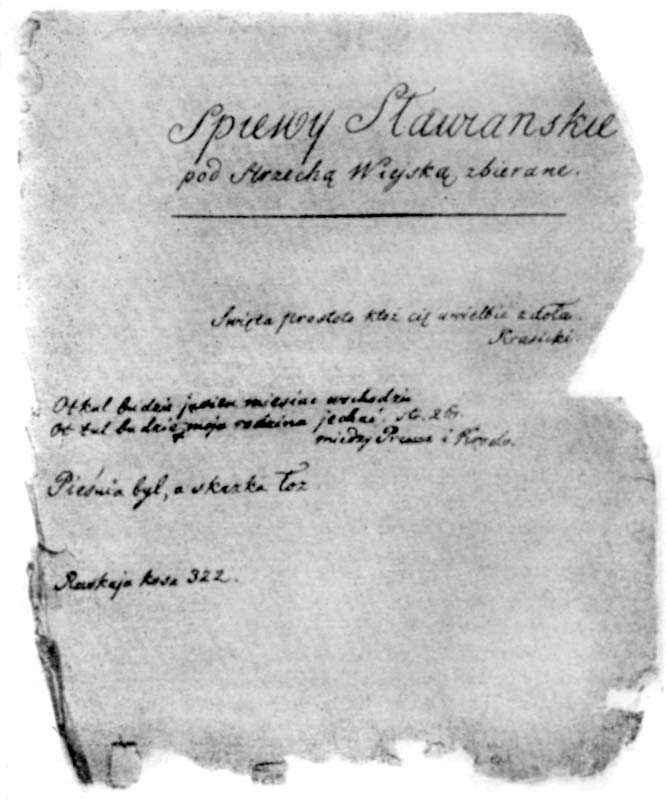 Spiewy Sławianskie
pod Strzechą Wiejską zbierane.
Święta prostoto któż cię uwielbić zdoła.
Krasicki.
Otkul budzie jasien miesiac uschodzić
Ot tul budzie moja rodzina jechać. str. 26.
między Prewu i
Pieśnia byl, a skazka łoż
Ruskaja kosa 322.